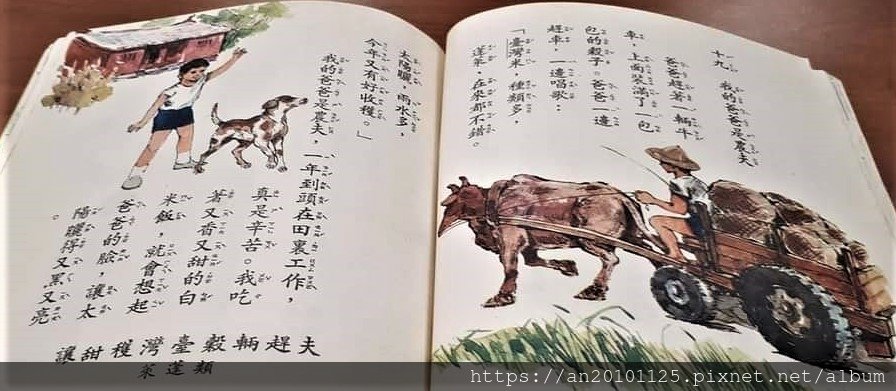 十九 我的爸爸是農夫
爸爸趕著一輛牛
車，上面裝滿了一包
包的穀子。爸爸一邊
趕車，一邊唱歌：
「臺灣米，種類多，
蓬萊，在來都不錯。
太陽曬，雨水多，
今年又有好收穫。」
我的爸爸是農夫，一年到頭在田裏工作，
真是辛苦。我吃
著又香又甜的白
米飯，就會想起
爸爸的臉，讓太
陽曬得又黑又亮
。
夫趕輛穀臺灣穫甜讓
類蓬萊
https://an20101125.pixnet.net/album